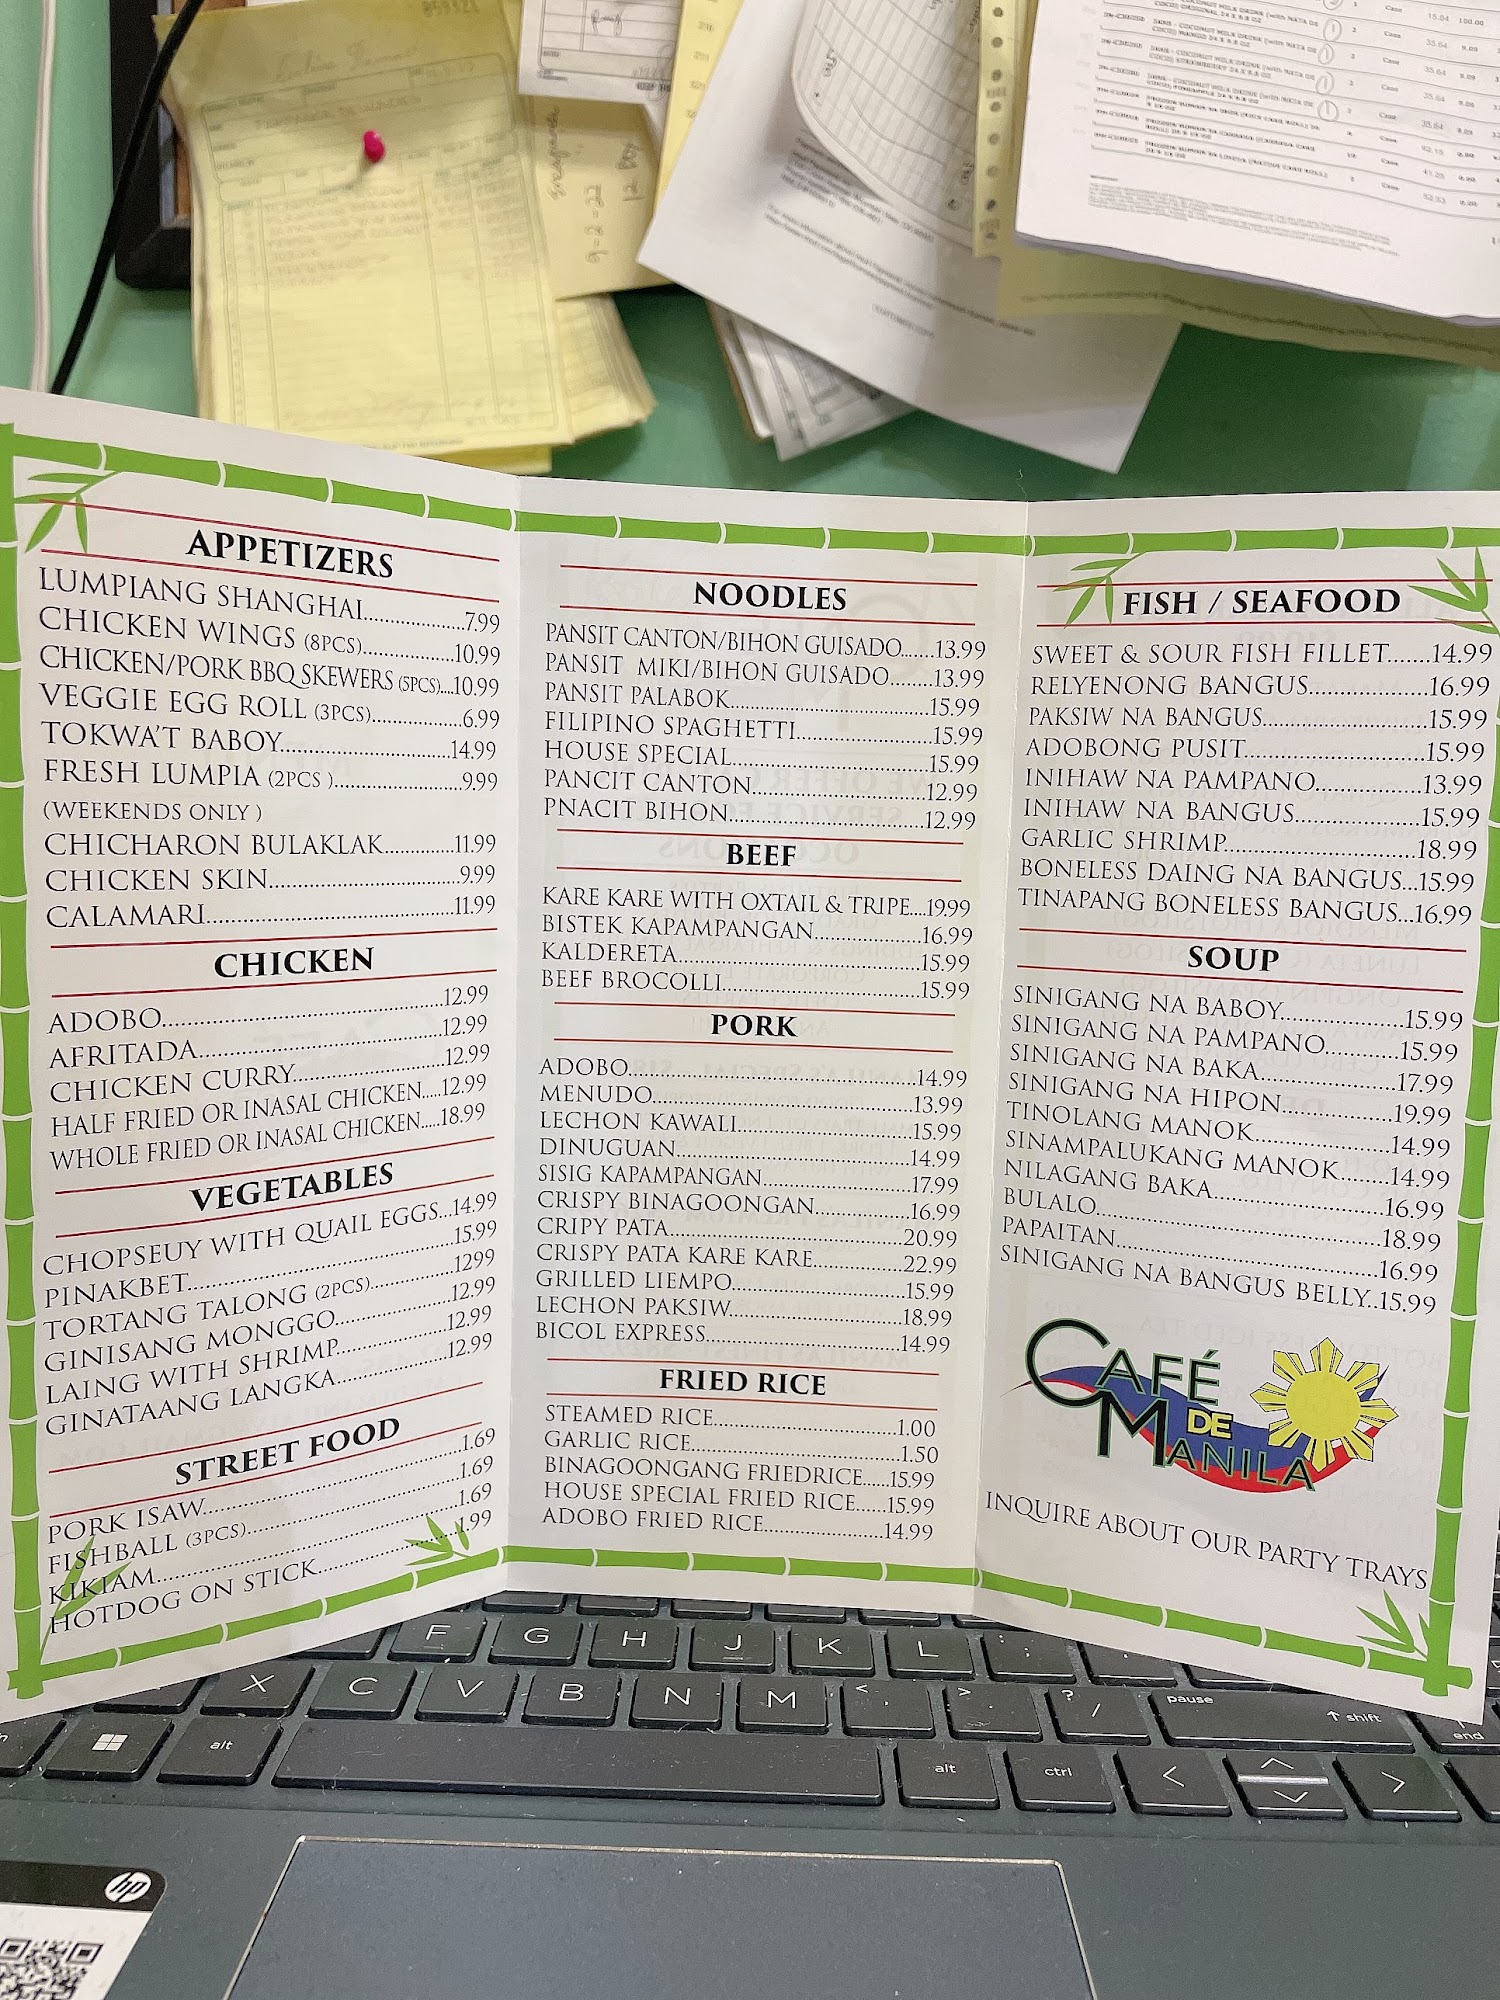 9-2-22
APPETIZERS
LUMPIANG SHANGHAI....7.99
CHICKEN WINGS (8PCS)....10.99
CHICKEN/PORK BBQ SKEWERS (5PCS)....10.99
VEGGIE EGG ROLL (3PCS)....6.99
TOKWA'T BABOY....14.99
FRESH LUMPIA (2PCS )....9.99
(WEEKENDS ONLY )
CHICHARON BULAKLAK....11.99
CHICKEN SKIN....9.99
CALAMARI....11.99
CHICKEN
ADOBO....12.99
AFRITADA....12.99
CHICKEN CURRY....12.99
HALF FRIED OR INASAL CHICKEN....12.99
WHOLE FRIED OR INASAL CHICKEN....18.99
VEGETABLES
CHOPSEUY WITH QUAIL EGGS...14.99
PINAKBET....15.99
TORTANG TALONG (2PCS)....1299
GINISANG MONGGO....12.99
LAING WITH SHRIMP....12.99
GINATAANG LANGKA....12.99
STREET FOOD
PORK ISAW....1.69
FISHBALL (3PCS)....1.69
KIKIAM....1.69
HOTDOG ON STICK....1.99
NOODLES
PANSIT CANTON/BIHON GUISADO....13.99
PANSIT MIKI/BIHON GUISADO....13.99
PANSIT PALABOK....15.99
FILIPINO SPAGHETTI....15.99
HOUSE SPECIAL....15.99
PANCIT CANTON....12.99
PNACIT BIHON....12.99
BEEF
KARE KARE WITH OXTAIL & TRIPE....19.99
BISTEK KAPAMPANGAN....16.99
KALDERETA....15.99
BEEF BROCOLLI....15.99
PORK
ADOBO....14.99
MENUDO....13.99
LECHON KAWALI....15.99
DINUGUAN....14.99
SISIG KAPAMPANGAN....17.99
CRISPY BINAGOONGAN....16.99
CRIPY PATA....20.99
CRISPY PATA KARE KARE....22.99
GRILLED LIEMPO....15.99
LECHON PAKSIW....18.99
BICOL EXPRESS....14.99
FRIED RICE
STEAMED RICE....1.00
GARLIC RICE....1.50
BINAGOONGANG FRIEDRICE....15.99
HOUSE SPECIAL FRIED RICE....15.99
ADOBO FRIED RICE....14.99
FISH / SEAFOOD
SWEET & SOUR FISH FILLET....14.99
RELYENONG BANGUS....16.99
PAKSIW NA BANGUS....15.99
ADOBONG PUSIT....15.99
INIHAW NA PAMPANO....13.99
INIHAW NA BANGUS....15.99
GARLIC SHRIMP....18.99
BONELESS DAING NA BANGUS...15.99
TINAPANG BONELESS BANGUS...16.99
SOUP
SINIGANG NA BABOY....15.99
SINIGANG NA PAMPANO....15.99
SINIGANG NA BAKA....17.99
SINIGANG NA HIPON....19.99
TINOLANG MANOK....14.99
SINAMPALUKANG MANOK....14.99
NILAGANG BAKA....16.99
BULALO....18.99
PAPAITAN....16.99
SINIGANG NA BANGUS BELLY..15.99
CAFÉ
DE
MANILA
INQUIRE ABOUT OUR PARTY TRAYS
F G H J K L ;
X C V B N M < , > . ? / pause shift
alt alt ctrl < > end
hp